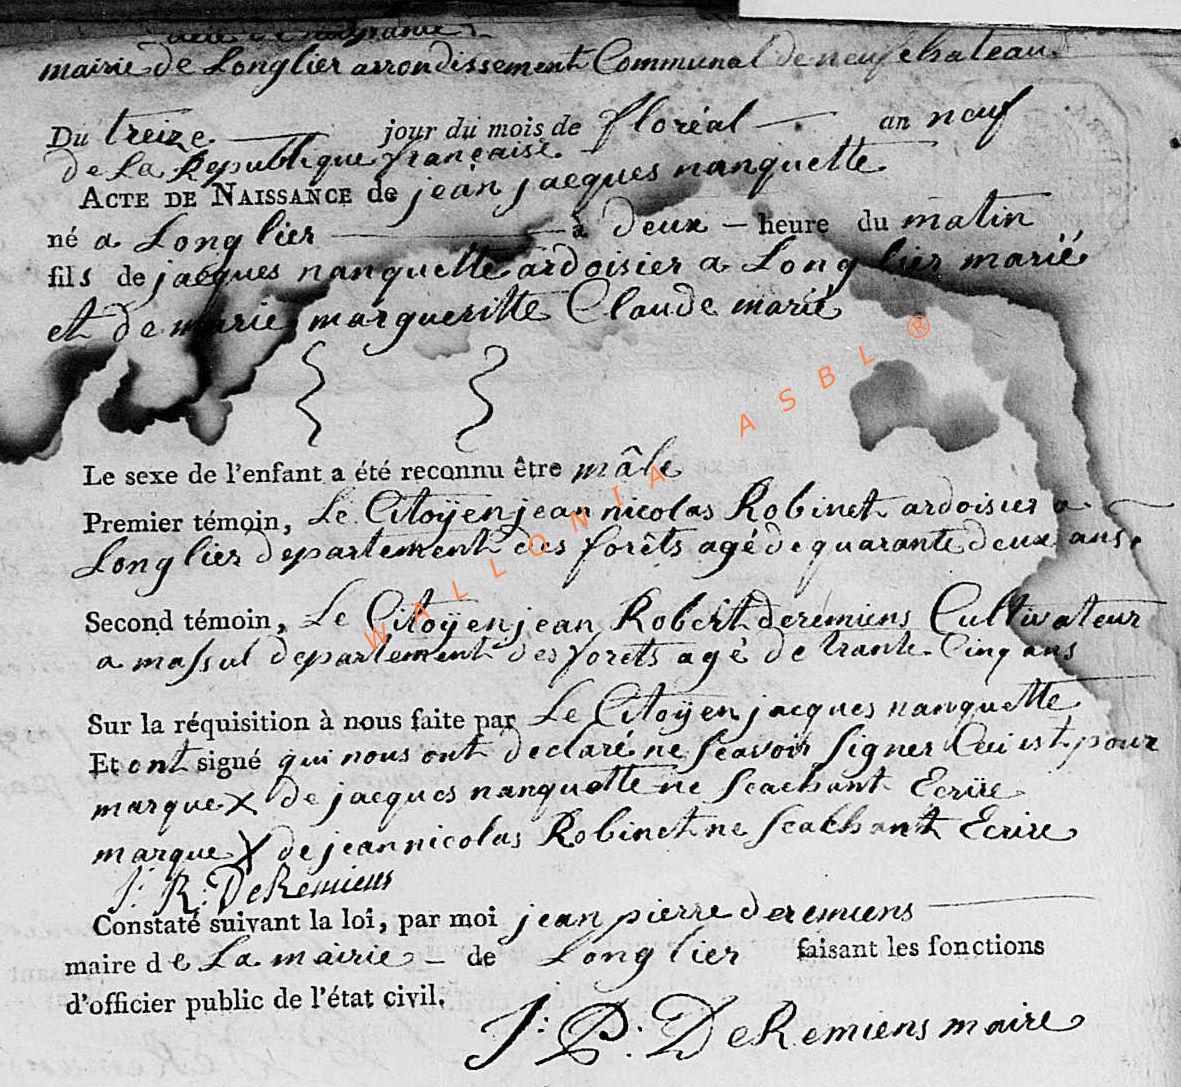 acte de naissance
mairie de Longlier arrondissement Communal de neufchateau.
Du treize jour du mois de floréal an neuf
de La Republique française.
ACTE DE NAISSANCE de jean jacques nanquette
né a Longlier à deux heure du matin
fils de jacques nanquette ardoisier a Longlier marié
et de marie margueritte Claude marié
Le sexe de l'enfant a été reconnu être mâle
Premier témoin, Le Citoÿen jean nicolas Robinet ardoisier a
Longlier departement des forêts agé de quarante deux ans.
Second témoin, Le Citoÿen jean Robert deremiens Cultivateur
a massul departement des forets agé de trante Cinq ans
Sur la réquisition à nous faite par Le Citoÿen jacques nanquette
Et ont signé qui nous ont declaré ne scavoir signer Ceci est pour
marque X de jacques nanquette ne scachant Ecrire
marque X de jean nicolas Robinet ne scachant Ecrire
J: R: DeRemiens
Constaté suivant la loi, par moi jean pierre deremiens
maire de La mairie de Longlier faisant les fonctions
d'officier public de l'état civil.
J: P: DeRemiens maire
WALLONIA ASBL ®